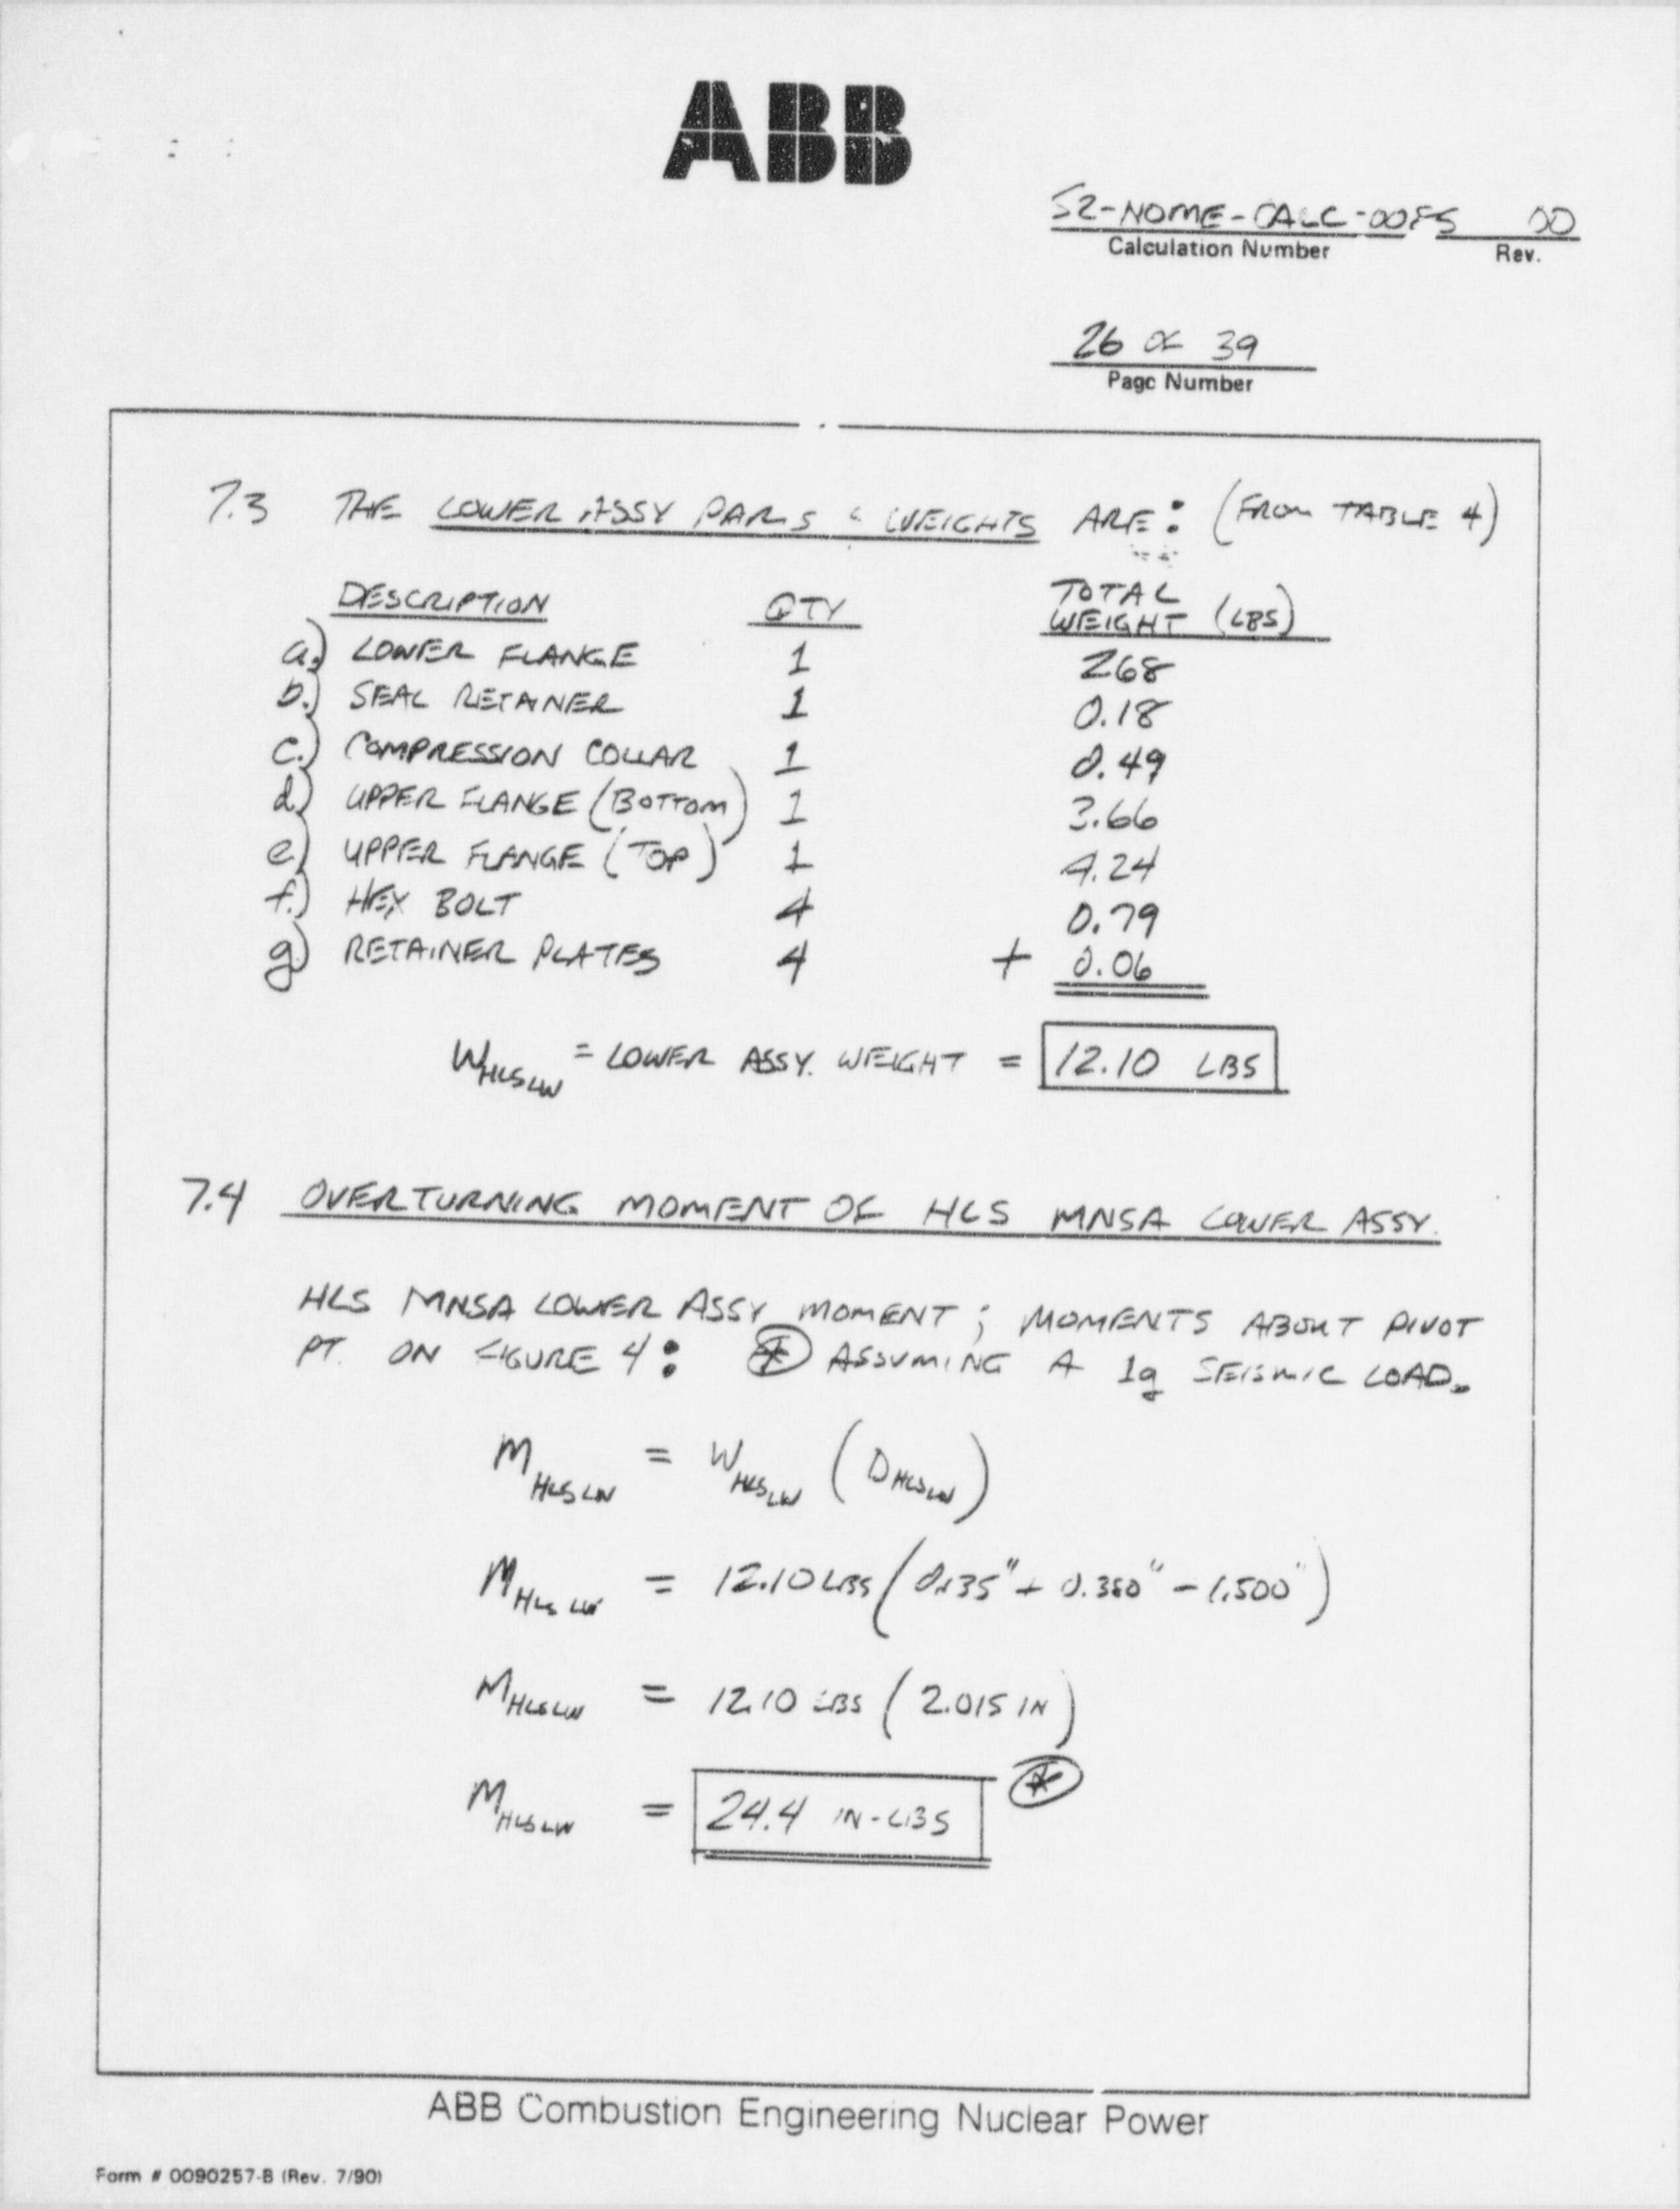 ABB
S2-NOME-CALC-00 00
Calculation Number Rev.
26 OF 39
Page Number
7.3 THE LOWER ASSY PARTS & WEIGHTS ARE: (FROM TABLE 4)
DESCRIPTION QTY TOTAL WEIGHT (LBS)
a.) LOWER FLANGE 1 2.68
b.) SEAL RETAINER 1 0.18
c.) COMPRESSION COLLAR 1 0.49
d.) UPPER FLANGE (BOTTOM) 1 3.66
e.) UPPER FLANGE (TOP) 1 4.24
f.) HEX BOLT 4 0.79
g.) RETAINER PLATES 4 + 0.06
WHLSLW = LOWER ASSY. WEIGHT = 12.10 LBS
7.4 OVERTURNING MOMENT OF HLS MNSA LOWER ASSY.
HLS MNSA LOWER ASSY MOMENT; MOMENTS ABOUT PIVOT
PT. ON FIGURE 4: * ASSUMING A 1g SEISMIC LOAD.
MHLSLW = WHLSLW (DHLSLW)
MHLSLW = 12.10 LBS (0.135" + 0.380" + 1.500")
MHLSLW = 12.10 LBS (2.015 IN)
MHLSLW = 24.4 IN-LBS *
ABB Combustion Engineering Nuclear Power
Form # 0090257-B (Rev. 7/90)